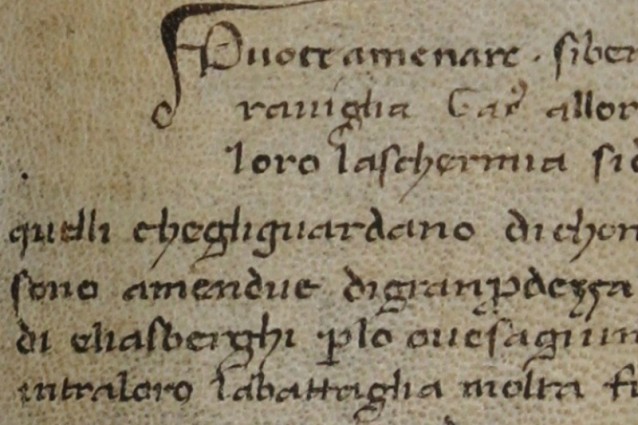 Puote amenare . siben
raviglia Ca allor
loro laschermia si
quelli chegliguardano dichon
sono amendue digran pdezza
di eliasberghi plo ouesagiun
intraloro labattaglia molta fi